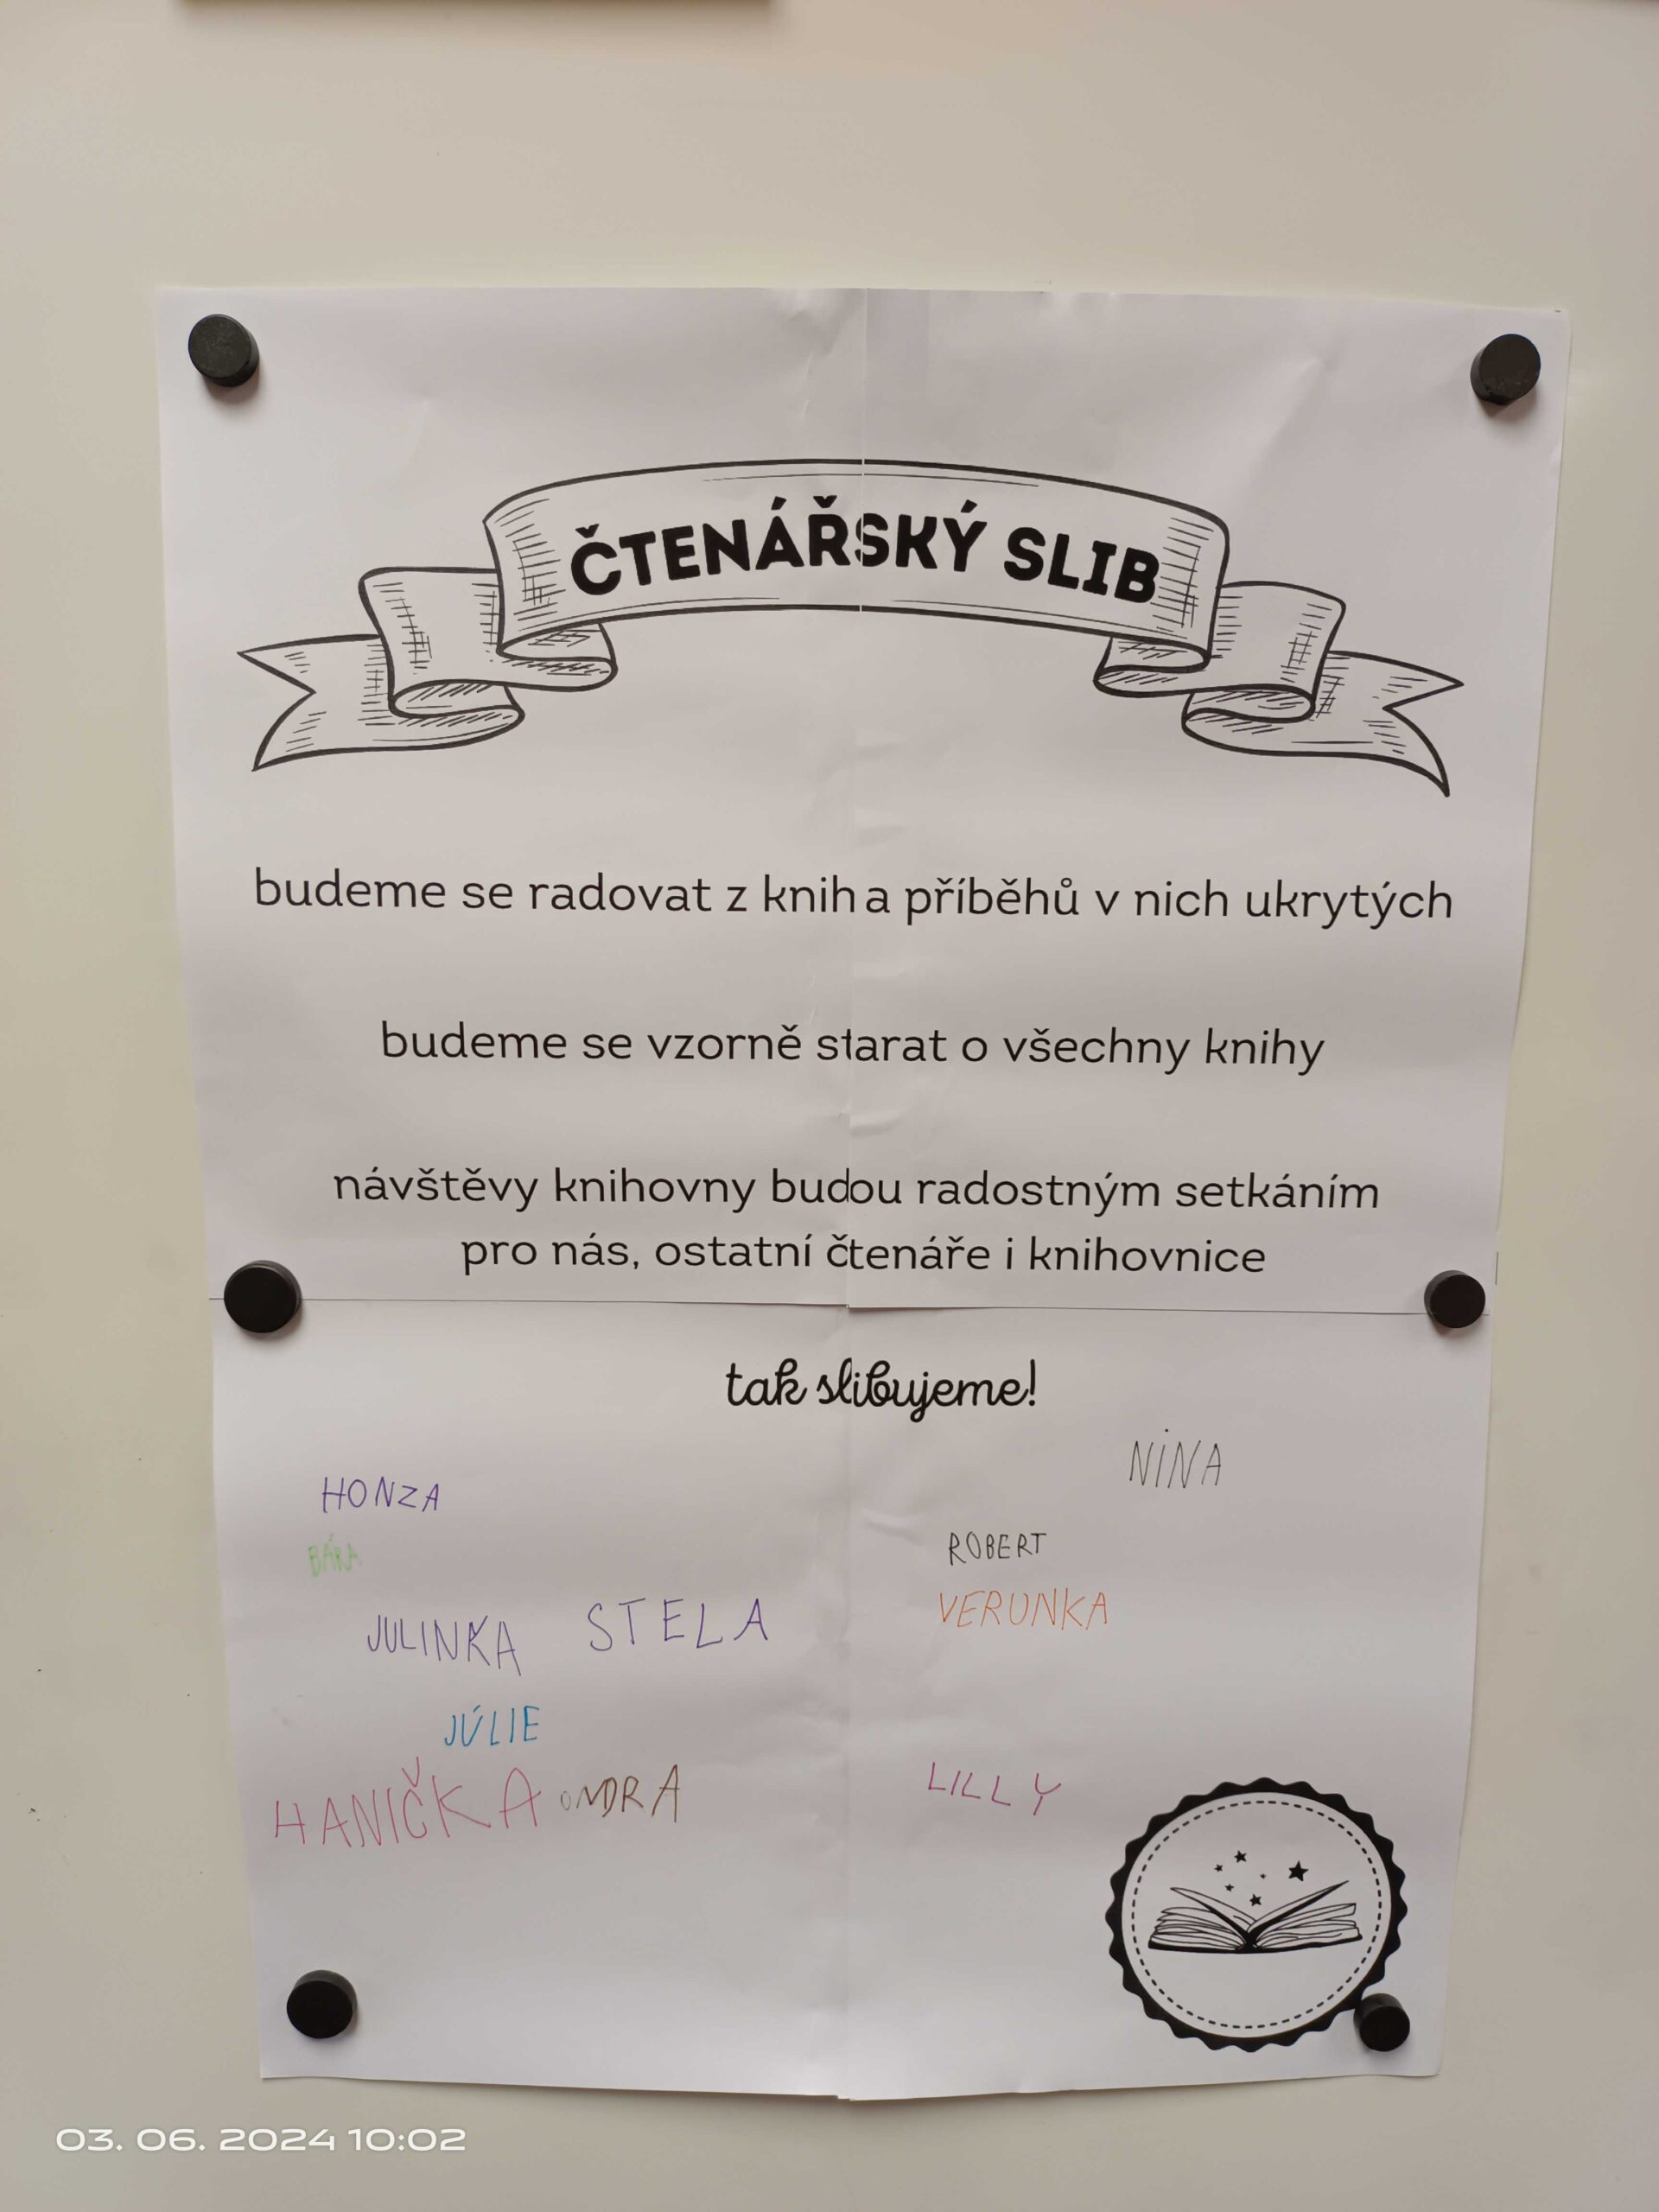 ČTENÁŘSKÝ SLIB
budeme se radovat z knih a příběhů v nich ukrytých
budeme se vzorně starat o všechny knihy
návštěvy knihovny budou radostným setkáním
pro nás, ostatní čtenáře i knihovnice
tak slibujeme!
NINA
HONZA
ROBERT
BÁRA
VERUNKA
JULINKA STELA
JÚLIE
HANIČKA ONDRA
LILLY
03. 06. 2024 10:02